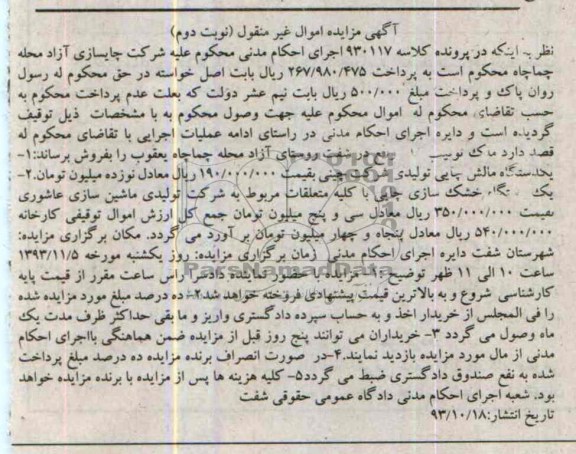 آگهی مزایده اموال غیر منقول (نوبت دوم)
نظر به اینکه در پرونده کلاسه ۹۳۰۱۱۷ اجرای احکام مدنی محکوم علیه شرکت چایسازی آزاد محله
چماچاه محکوم است به پرداخت ۲۶۷/۹۸۰/۴۷۵ ریال بابت اصل خواسته در حق محکوم له رسول
روان پاک و پرداخت مبلغ ۵۰۰/۰۰۰ ریال بابت نیم عشر دولت که بعلت عدم پرداخت محکوم به
حسب تقاضای محکوم له اموال محکوم علیه جهت وصول محکوم به با مشخصات ذیل توقیف
گردیده است و دایره اجرای احکام مدنی در راستای ادامه عملیات اجرایی با تقاضای محکوم له
قصد دارد در شفت روستای آزاد محله چماچاه یعقوب را بفروش برساند:۱-
یکدستگاه مالش چایی تولیدی چینی بقیمت ۱۹۰/۰۰۰/۰۰۰ ریال معادل نوزده میلیون تومان.۲-
یک خشک سازی چایی با کلیه متعلقات مربوط به شرکت تولیدی ماشین سازی عاشوری
بقیمت ۳۵۰/۰۰۰/۰۰۰ ریال معادل سی و پنج میلیون تومان جمع کل ارزش اموال توقیفی کارخانه
۵۴۰/۰۰۰/۰۰۰ ریال معادل پنجاه و چهار میلیون تومان بر آورد می گردد. مکان برگزاری مزایده:
شهرستان شفت دایره اجرای احکام مدنی زمان برگزاری مزایده: روز یکشنبه مورخه ۱۳۹۳/۱۱/۵
ساعت ۱۰ الی ۱۱ ظهر توضیح مزایده با حضور نماینده دادسرا راس ساعت مقرر از قیمت پایه
کارشناسی شروع و به بالاترین قیمت پیشنهادی فروخته خواهد شد۲- ده درصد مبلغ مورد مزایده شده
را فی المجلس از خریدار اخذ و به حساب سپرده دادگستری واریز و مابقی حداکثر ظرف مدت یک
ماه وصول می گردد ۳- خریداران می توانند پنج روز قبل از مزایده ضمن هماهنگی بااجرای احکام
مدنی از مال مورد مزایده بازدید نمایند.۴-در صورت انصراف برنده مزایده ده درصد مبلغ پرداخت
شده به نفع صندوق دادگستری ضبط می گردد۵- کلیه هزینه ها پس از مزایده با برنده مزایده خواهد
بود. شعبه اجرای احکام مدنی دادگاه عمومی حقوقی شفت
تاریخ انتشار:۹۳/۱۰/۱۸